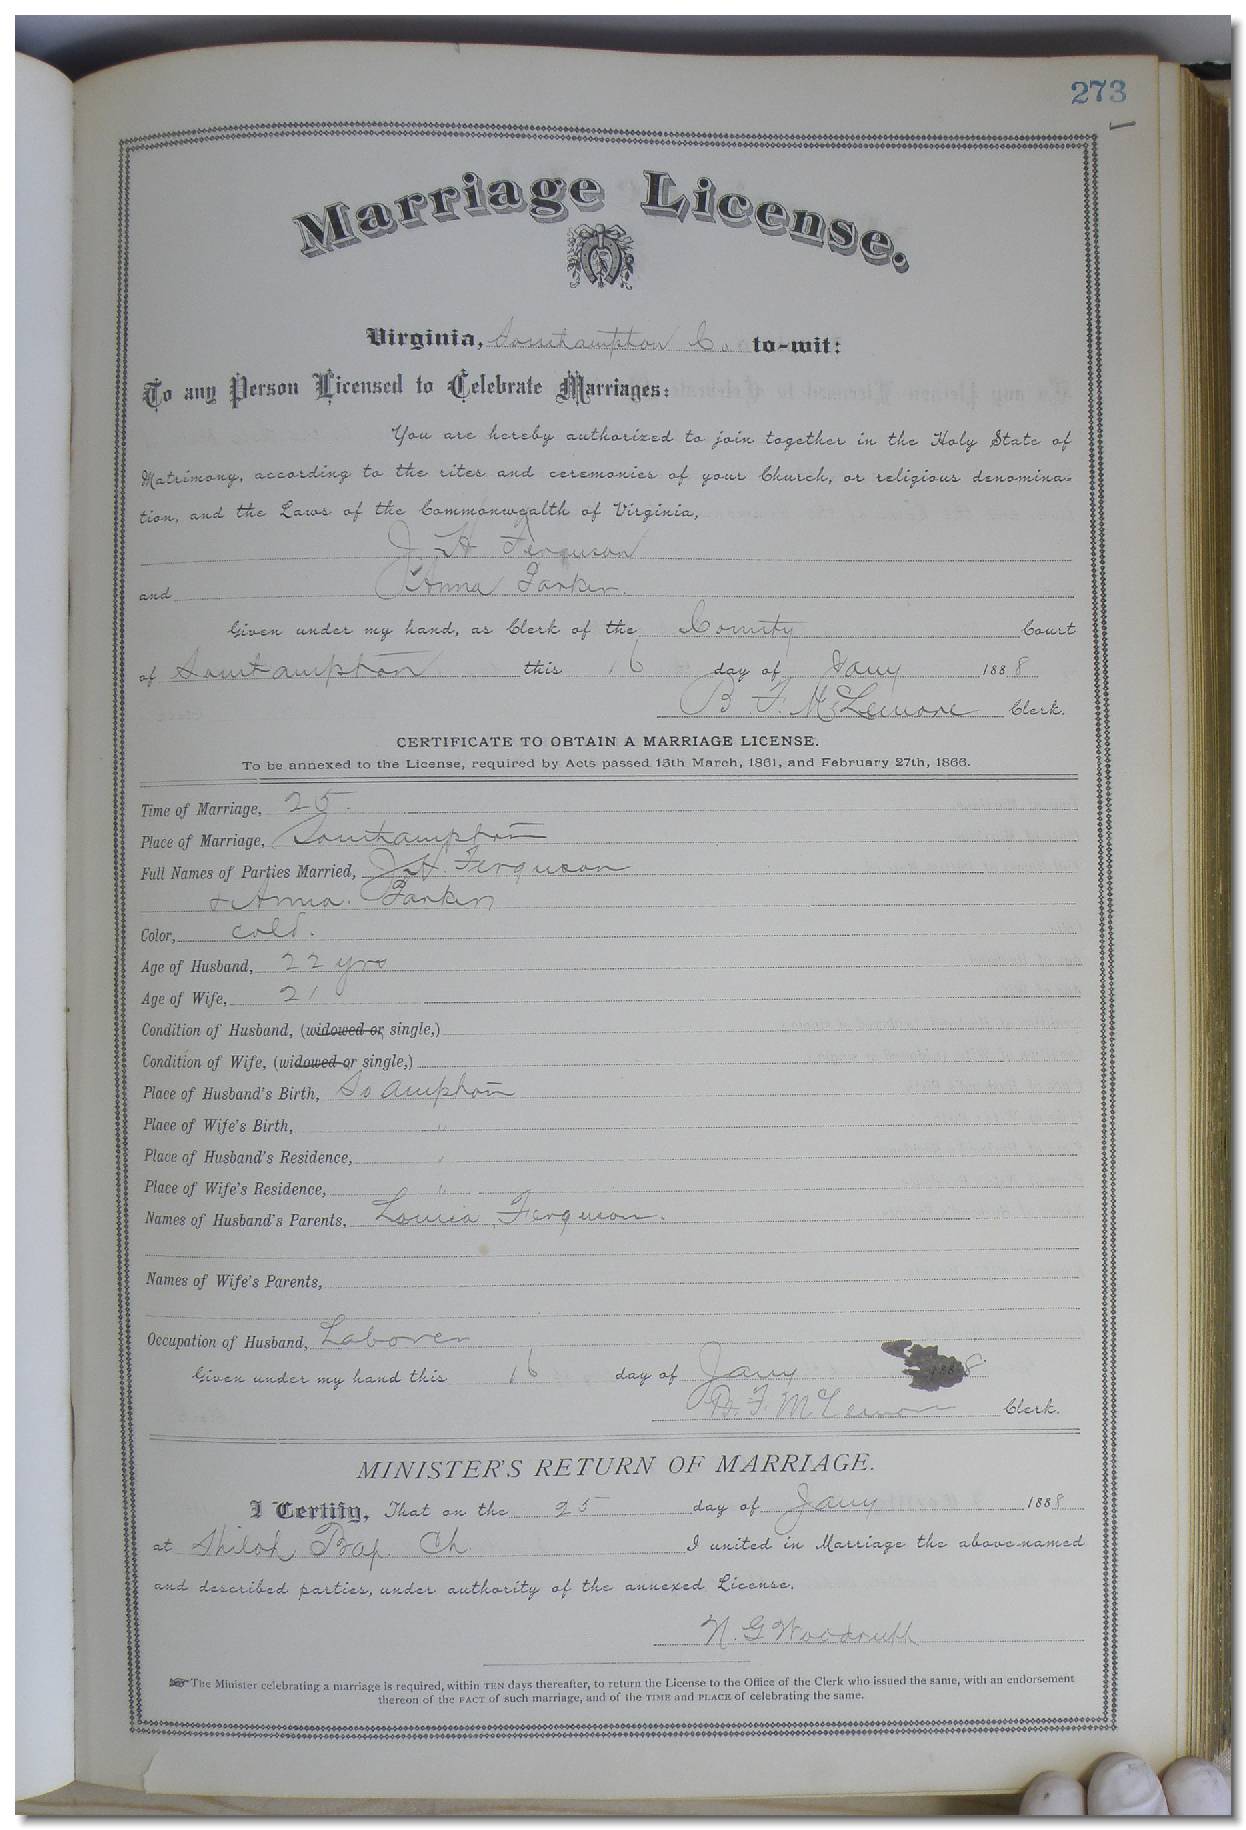 273
Marriage License.
Virginia, Southampton Co. to-wit:
To any Person Licensed to Celebrate Marriages:
You are hereby authorized to join together in the Holy State of
Matrimony, according to the rites and ceremonies of your Church, or religious denomina-
tion, and the Laws of the Commonwealth of Virginia,
J. H. Ferguson
and Anna
Given under my hand, as Clerk of the County Court
of Southampton this 16 day of Jany 1888
B. F. McLemore Clerk.
CERTIFICATE TO OBTAIN A MARRIAGE LICENSE.
To be annexed to the License, required by Acts passed 13th March, 1861, and February 27th, 1866.
Time of Marriage, 25.
Place of Marriage, Southampton
Full Names of Parties Married, J. H. Ferguson
& Anna.
Color, cold.
Age of Husband, 22 yrs
Age of Wife, 21
Condition of Husband, (widowed or single,)
Condition of Wife, (widowed or single,)
Place of Husband's Birth, So ampton
Place of Wife's Birth, "
Place of Husband's Residence, "
Place of Wife's Residence, "
Names of Husband's Parents, Louisa Ferguson.
Names of Wife's Parents,
Occupation of Husband, Laborer
Given under my hand this 16 day of Jany 1888
B. F. McLemore Clerk.
MINISTER'S RETURN OF MARRIAGE.
I Certify, That on the 25 day of Jany 1888
at Shiloh Bap. Ch. I united in Marriage the above-named
and described parties, under authority of the annexed License.
N. G. Woodruth
The Minister celebrating a marriage is required, within TEN days thereafter, to return the License to the Office of the Clerk who issued the same, with an endorsement
thereon of the FACT of such marriage, and of the TIME and PLACE of celebrating the same.